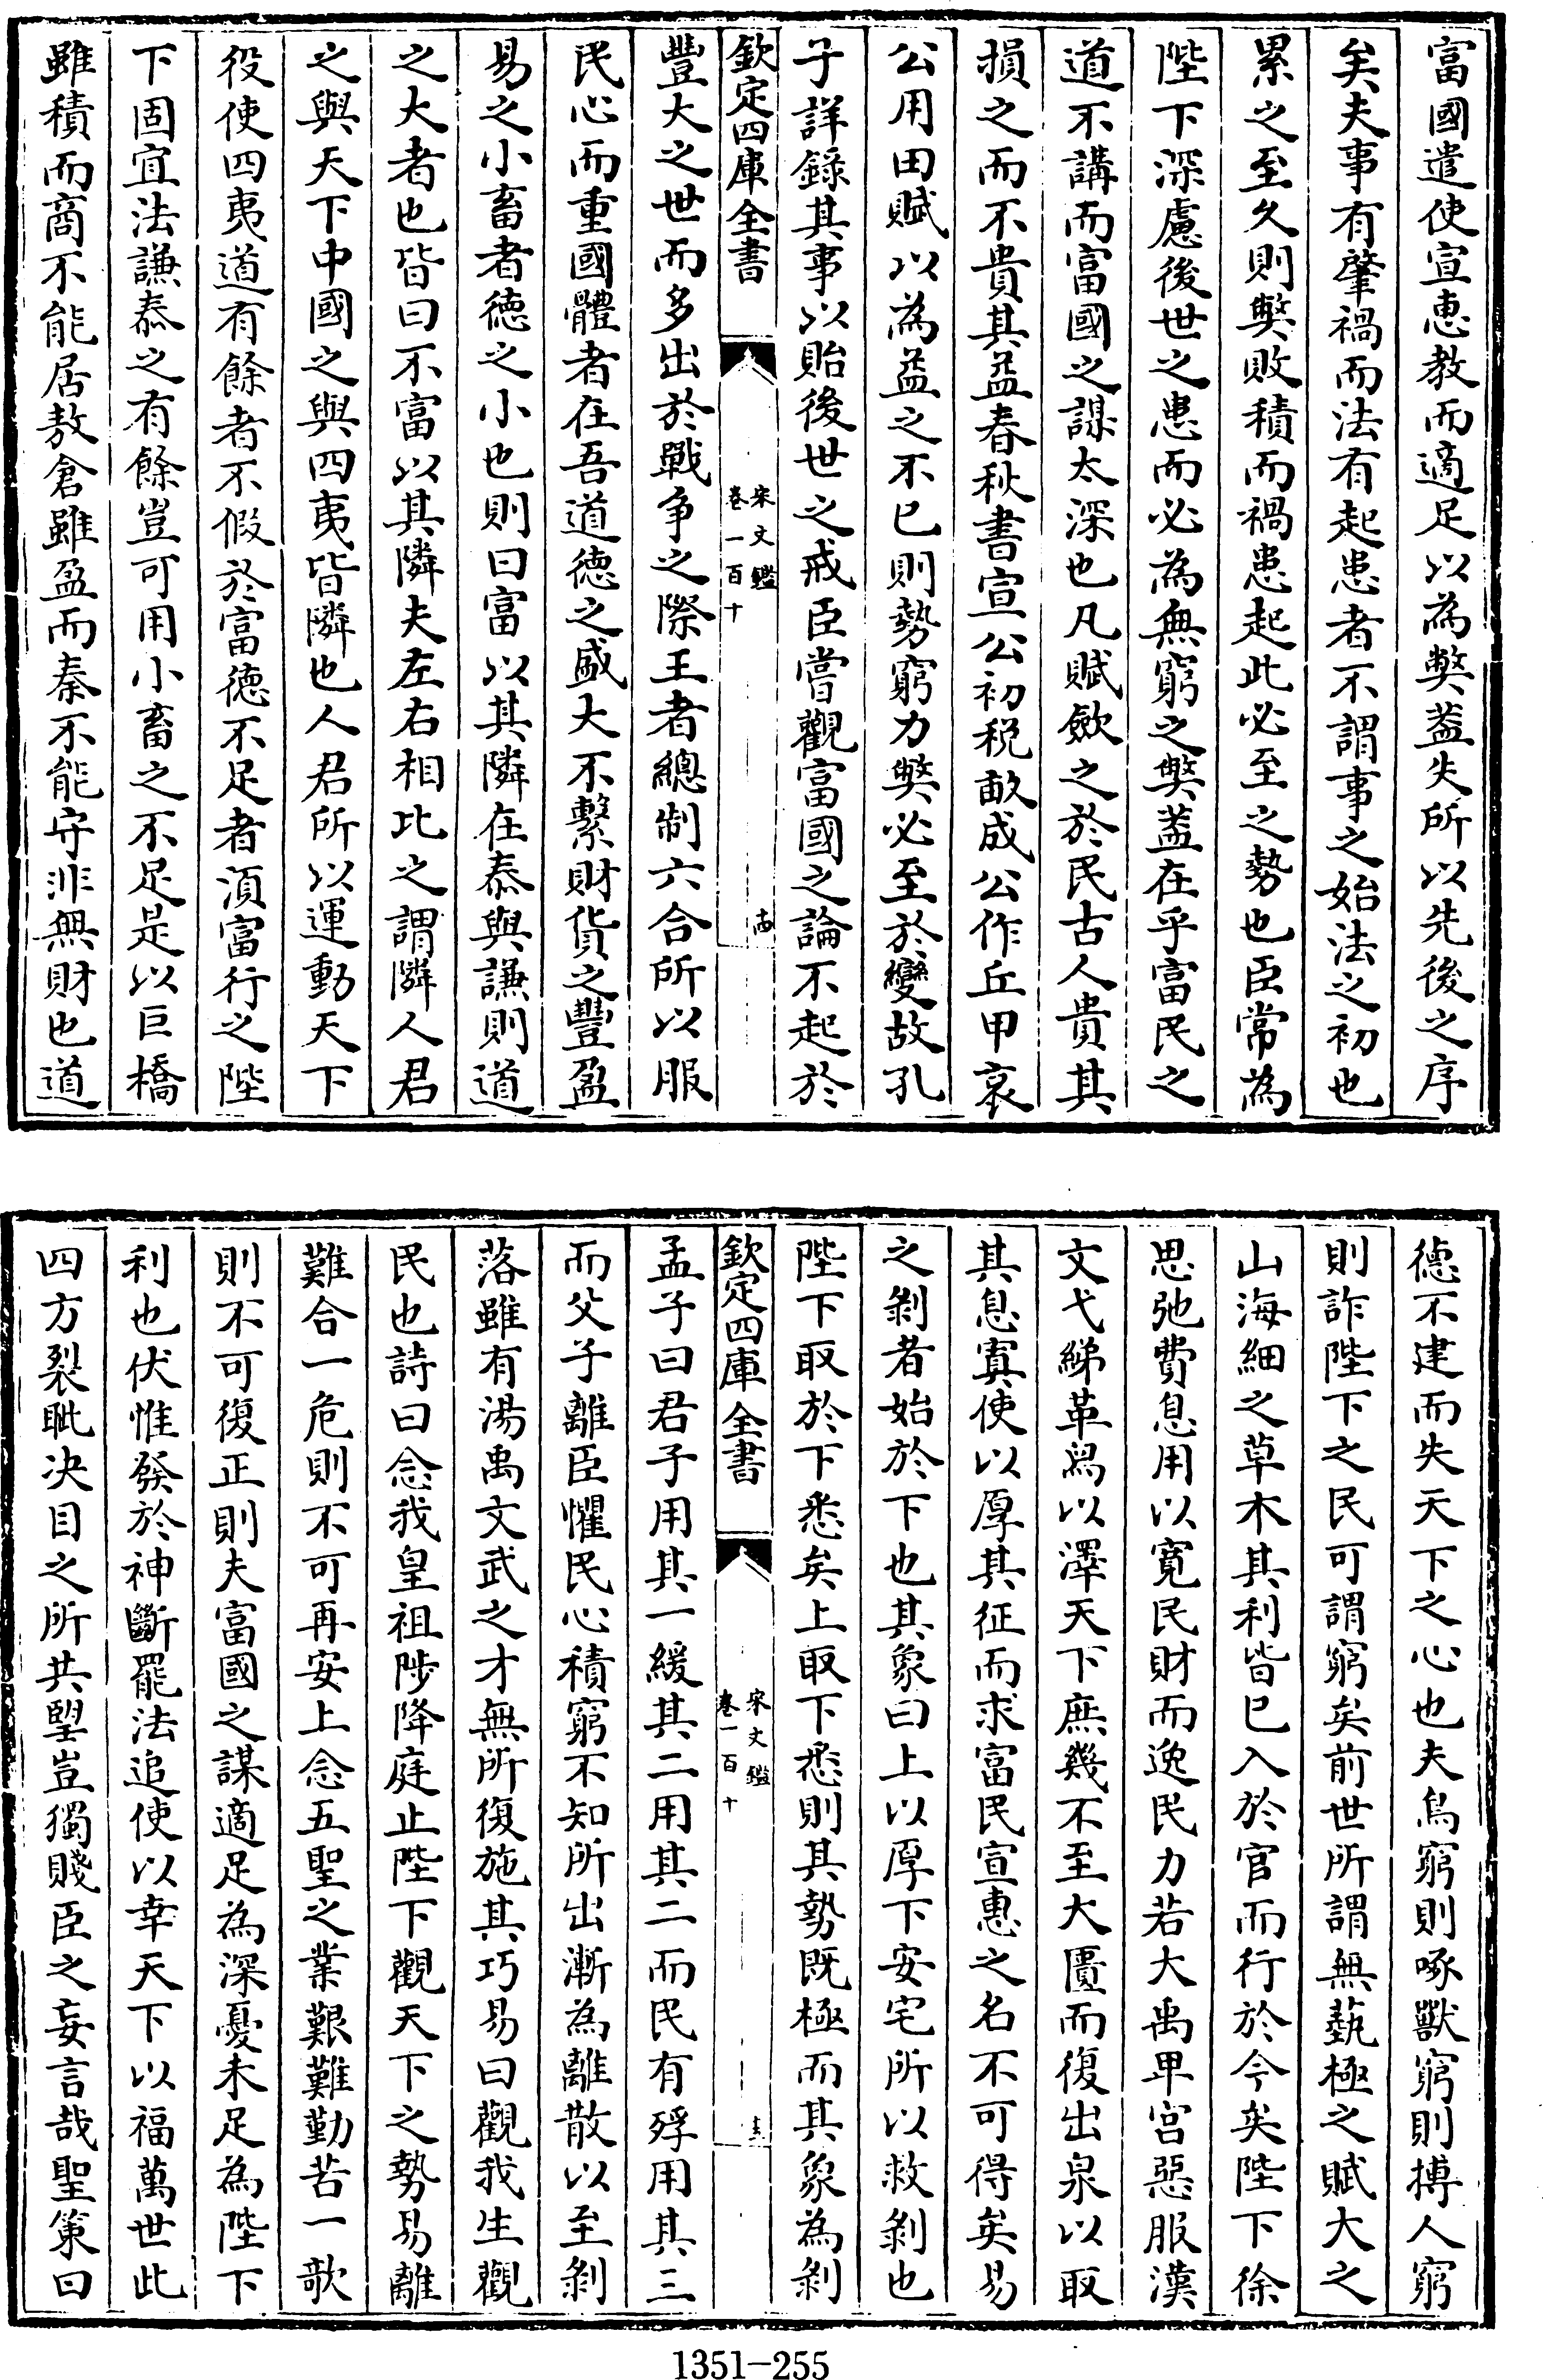 富國遣使宣惠教而適足以為弊葢失所以先後之序
矣夫事有肇禍而法有起患者不謂事之始法之初也
累之至久則弊敗積而禍患起此必至之勢也臣常為
陛下深慮後世之患而必為無窮之弊葢在乎富民之
道不講而富國之謀太深也凡賦斂之於民古人貴其
損之而不貴其益春秋書宣公初税畝成公作丘甲哀
公用田賦以為益之不已則勢窮力弊必至於變故孔
子詳錄其事以貽後世之戒臣嘗觀富國之論不起於
欽定四庫全書
宋文鑑
卷一百十
豐大之世而多出於戰争之際王者總制六合所以服
民心而重國體者在吾道徳之盛大不繫財貨之豐盈
易之小畜者徳之小也則曰富以其隣在泰與謙則道
之大者也皆曰不富以其隣夫左右相比之謂隣人君
之與天下中國之與四夷皆隣也人君所以運動天下
役使四夷道有餘者不假於富徳不足者湏富行之陛
下固宜法謙泰之有餘豈可用小畜之不足是以巨橋
雖積而商不能居敖倉雖盈而秦不能守非無財也道
徳不建而失天下之心也夫鳥窮則啄獸窮則搏人窮
則詐陛下之民可謂窮矣前世所謂無蓺極之賦大之
山海細之草木其利皆已入於官而行於今矣陛下徐
思弛費息用以寛民財而逸民力若大禹卑宫惡服漢
文弋綈革舄以澤天下庶幾不至大匱而復出泉以取
其息寘使以厚其征而求富民宣惠之名不可得矣易
之剝者始於下也其象曰上以厚下安宅所以救剝也
陛下取於下悉矣上取下悉則其勢既極而其象為剝
欽定四庫全書
宋文鑑
卷一百十
孟子曰君子用其一緩其二用其二而民有殍用其三
而父子離臣懼民心積窮不知所出漸為離散以至剝
落雖有湯禹文武之才無所復施其巧易曰觀我生觀
民也詩曰念我皇祖陟降庭止陛下觀天下之勢易離
難合一危則不可再安上念五聖之業艱難勤苦一歌
則不可復正則夫富國之謀適足為深憂未足為陛下
利也伏惟發於神斷罷法追使以幸天下以福萬世此
四方裂眦决目之所共望豈獨賤臣之妄言哉聖策曰
1351-255